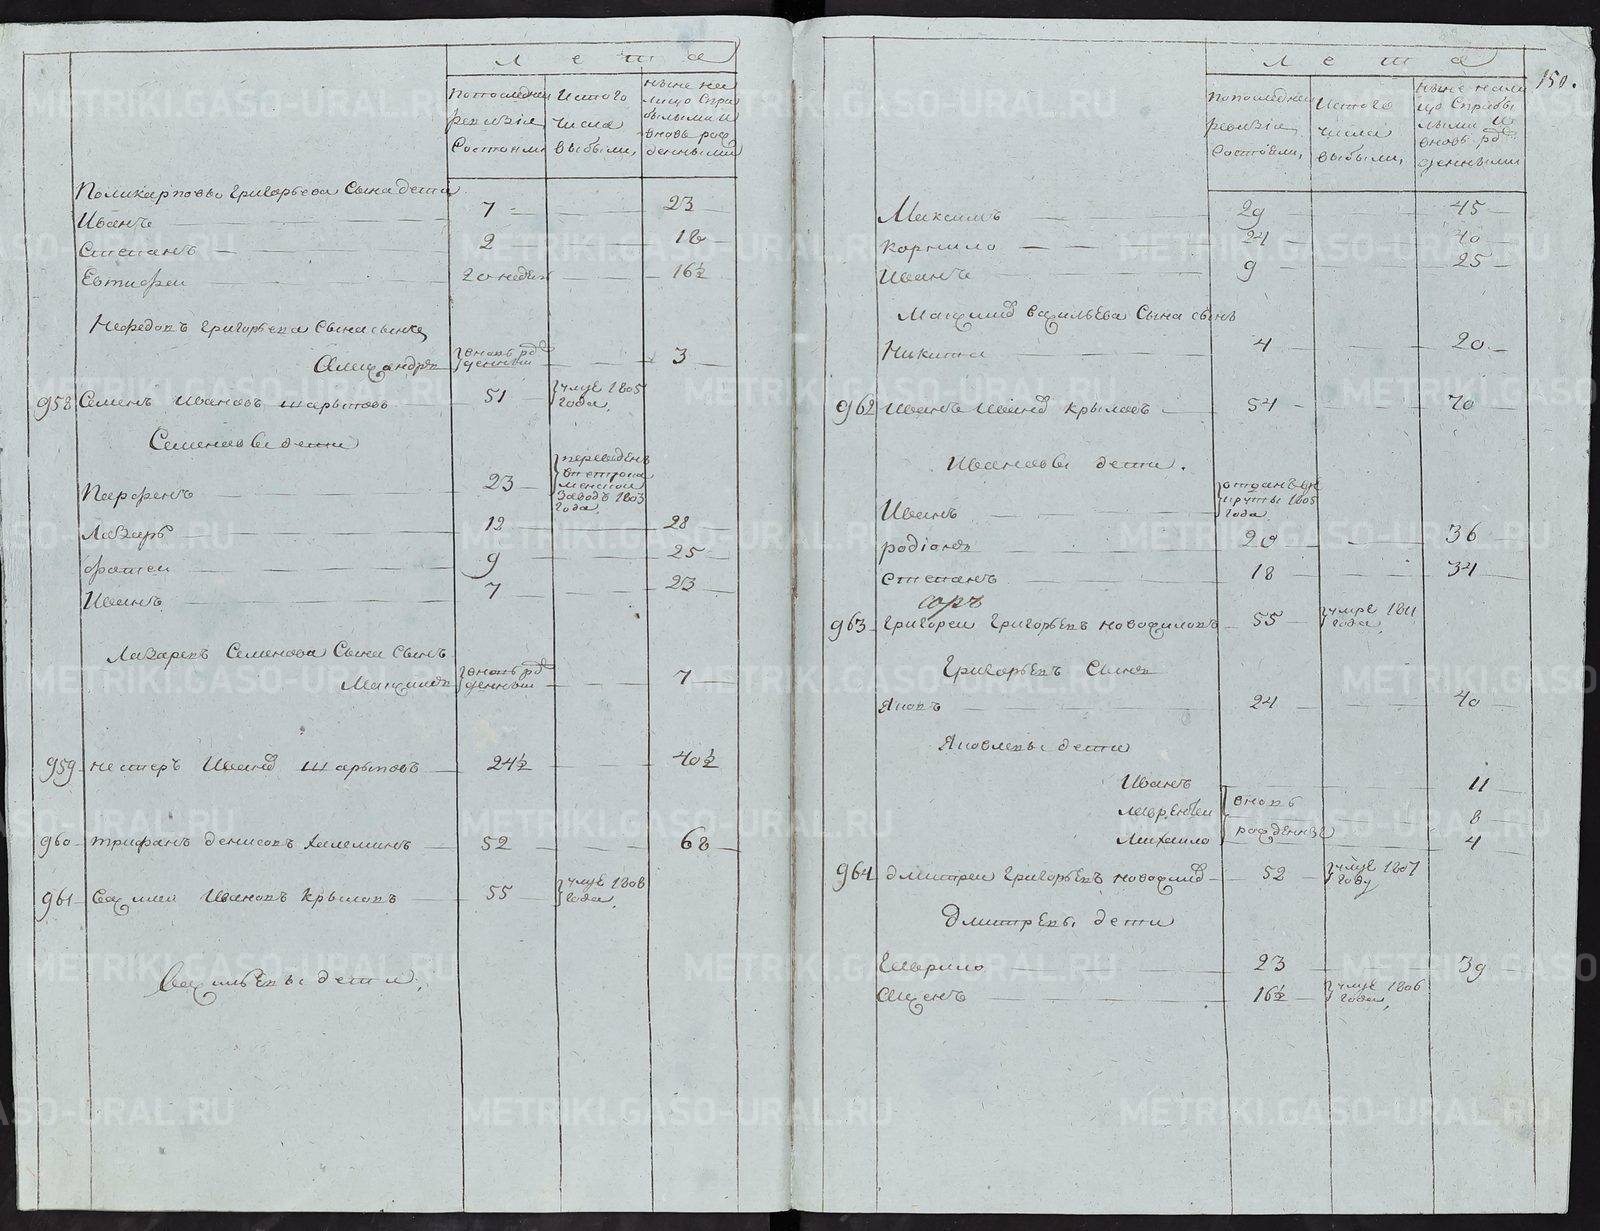 Лета
По последней ревизiи состояли,
Из того числа выбыли,
Ныне на лицо с прибылыми и вновь рожденными
Поликарповы Григорьева сына дети
Иванъ 7 23
Степанъ 2 18
Евтифеи 20 недел 16½
Нефедовъ Григорьева сына сынъ
Александръ вновь рожденныи 3
958 Семенъ Ивановъ Шарыповъ 51 умре 1805 года,
Семеновы дети
Парфенъ 23 переведенъ в петрокаменскои заводъ 1803 года
Лазарь 12 28
Фотеи 9 25
Иванъ 7 23
Лазаревъ Семенова сына сынъ
Максимъ вновь рожденныи 7
959 Нестеръ Иванов Шарыповъ 24½ 40½
960 Трифанъ Денисовъ 52 68
961 Василии Ивановъ Крыловъ 55 умре 1808 года,
Васильевы дети,
150.
Лета
По последней ревизiи состояли,
Из того числа выбыли,
Ныне на лицо с прибылыми и вновь рожденными
Максимъ 29 45
Корнило 24 40
Иванъ 9 25
Максимов Васильева сына сынъ
Никита 4 20
962 Иванъ Иванов Крыловъ 54 70
Ивановы дети.
Иванъ отданъ в рекруты 1805 года
Родiонъ 20 36
Степанъ 18 34
963 Григореи Григорьевъ 55 умре 1811 года,
Григорьевъ сынъ
Яковъ 24 40
Яковлевы дети
Иванъ 11
Лаврентеи вновь 8
Михаило рожденные 4
964 Дмитреи Григорьевъ 52 умре 1807 году
Дмитревы дети
Гаврило 23 39
Семенъ 16½ умре 1806 года,
METRIKI.GASO-URAL.RU